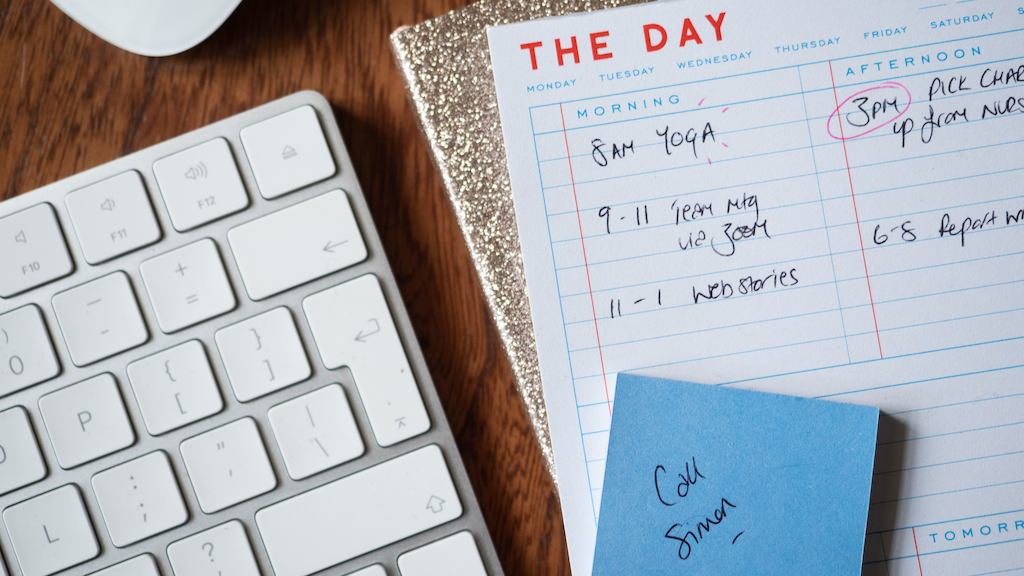 THE DAY
MONDAY TUESDAY WEDNESDAY THURSDAY FRIDAY SATURDAY
MORNING
8AM YOGA
9-11 Team Mtg
via Zoom
11-1 Web stories
AFTERNOON
3PM PICK
up from
6-8 Report
Call
Simon
TOMORR
F10
F11
F12
+
=
-
)
0
{
[
}
]
P
|
\
:
;
"
'
L
?